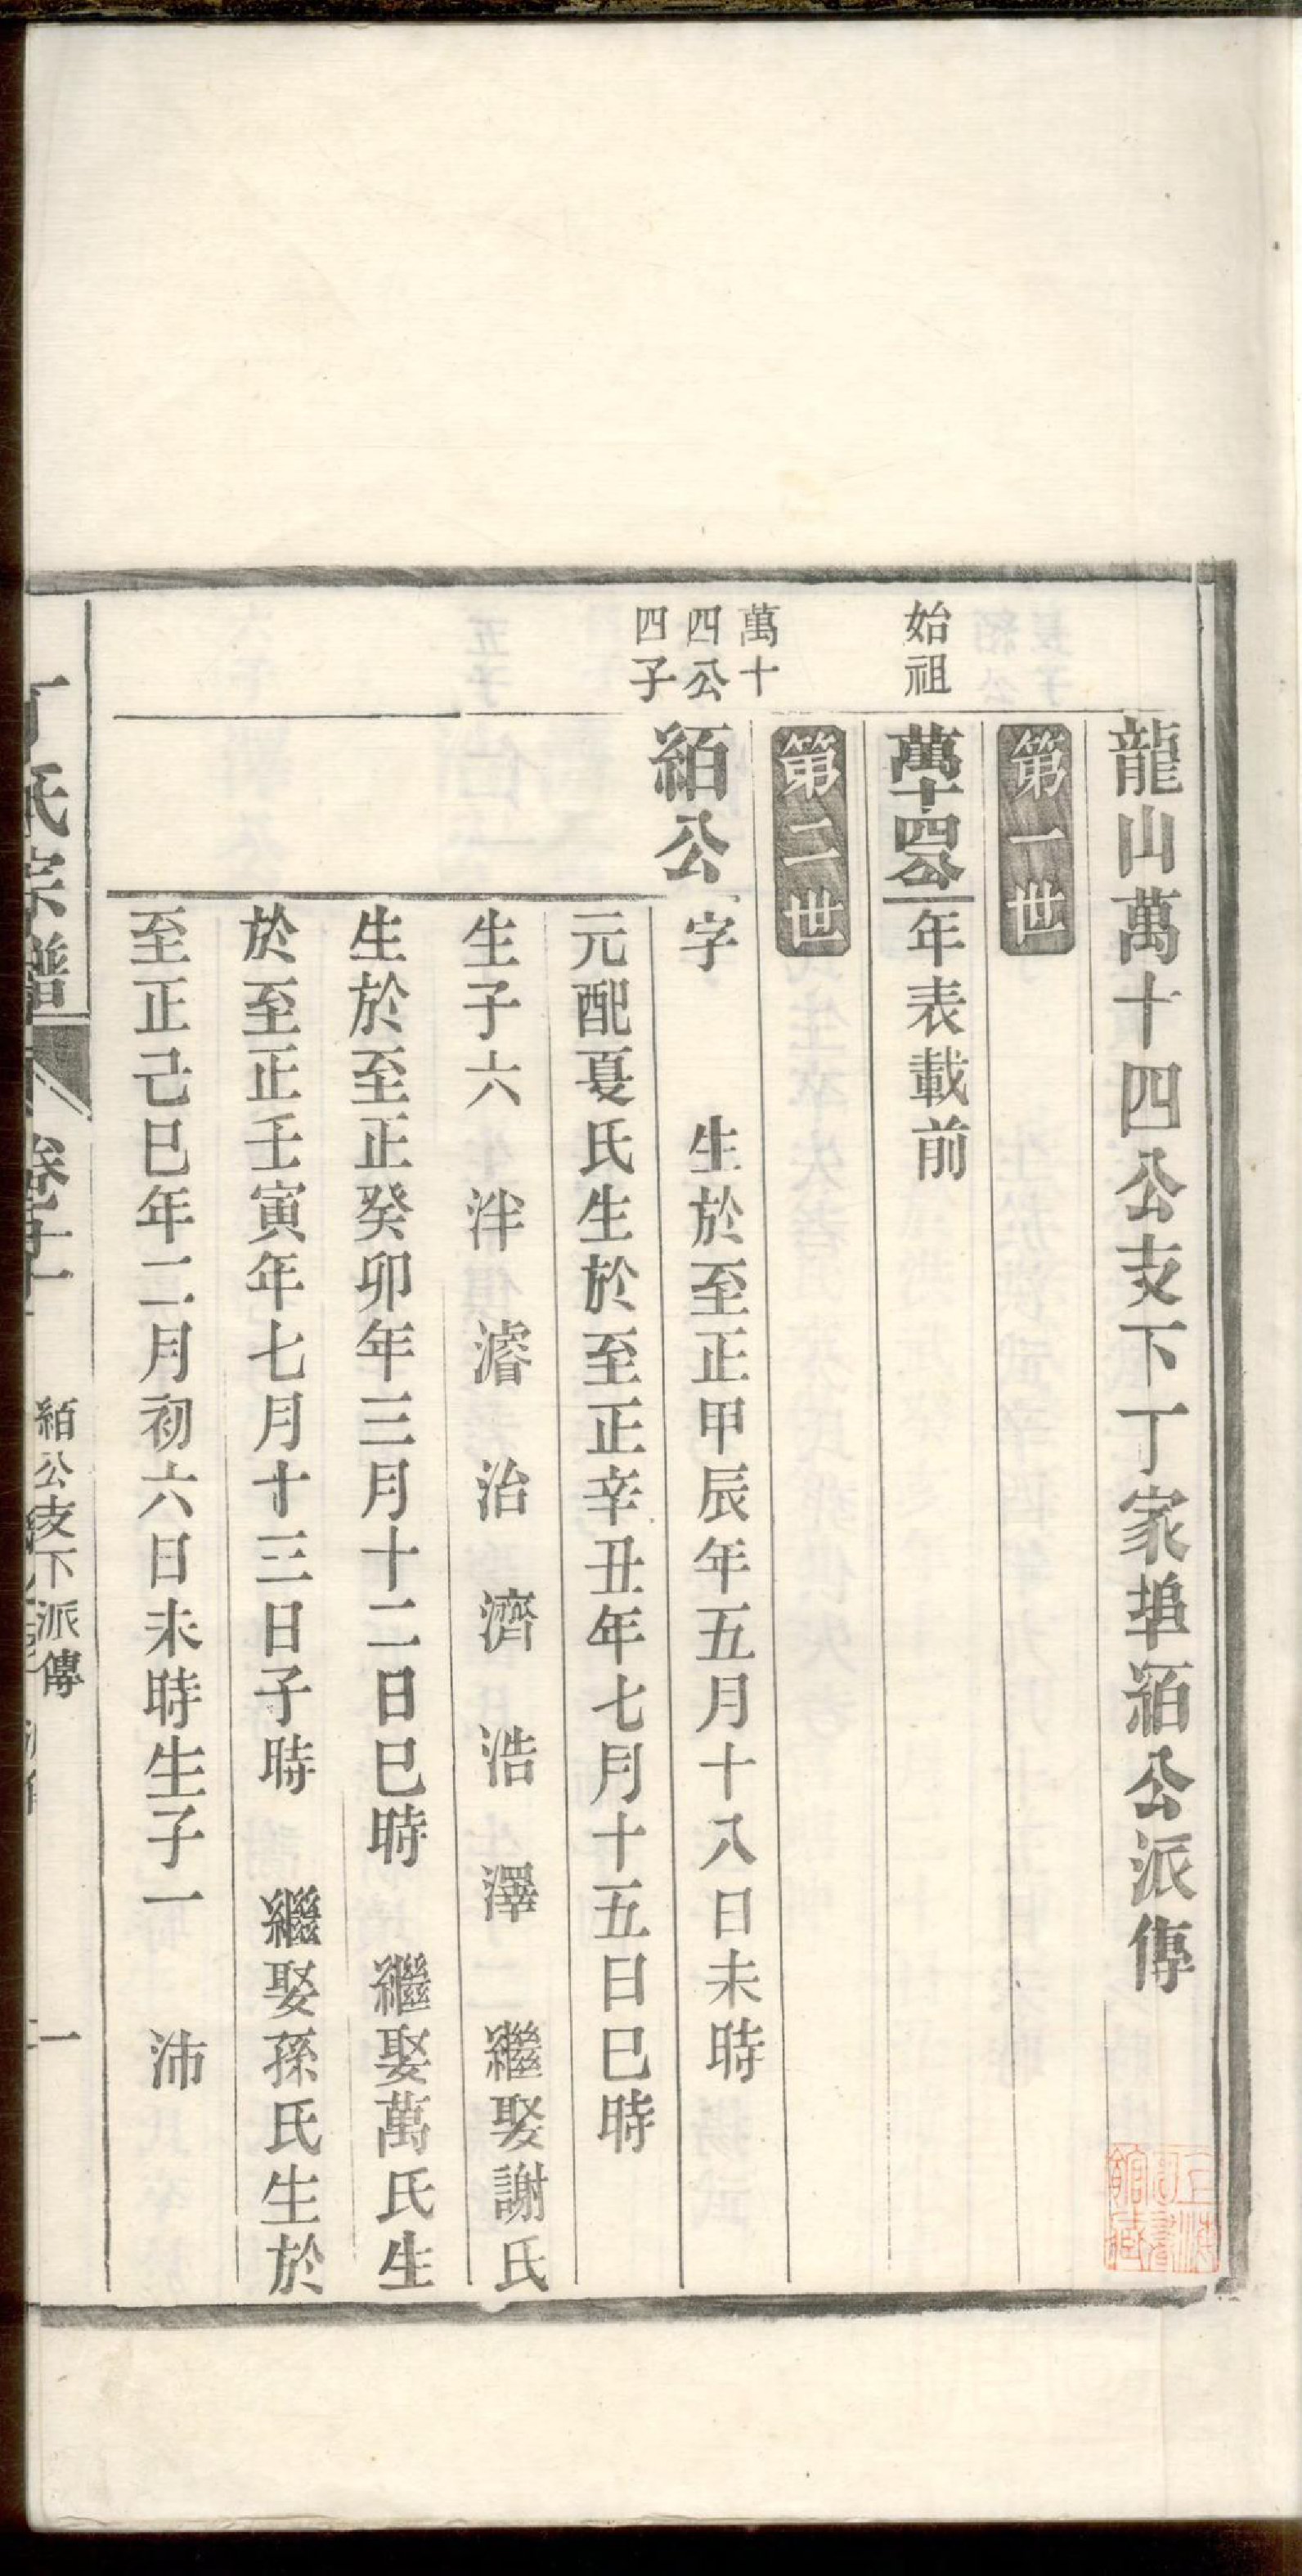 龍山萬十四公支下丁家埠絔公派傳
第一世
始祖
萬十四公 年表載前
第二世
萬十
四公
四子
絔公 字 生於至正甲辰年五月十八日未時
元配夏氏生於至正辛丑年七月十五日巳時
生子六 泮 濬 治 濟 浩 澤 繼娶謝氏
生於至正癸卯年三月十二日巳時 繼娶萬氏生
於至正壬寅年七月十三日子時 繼娶孫氏生於
至正己巳年二月初六日未時生子一 沛
丁氏宗譜 卷十一 絔公支下派傳 一